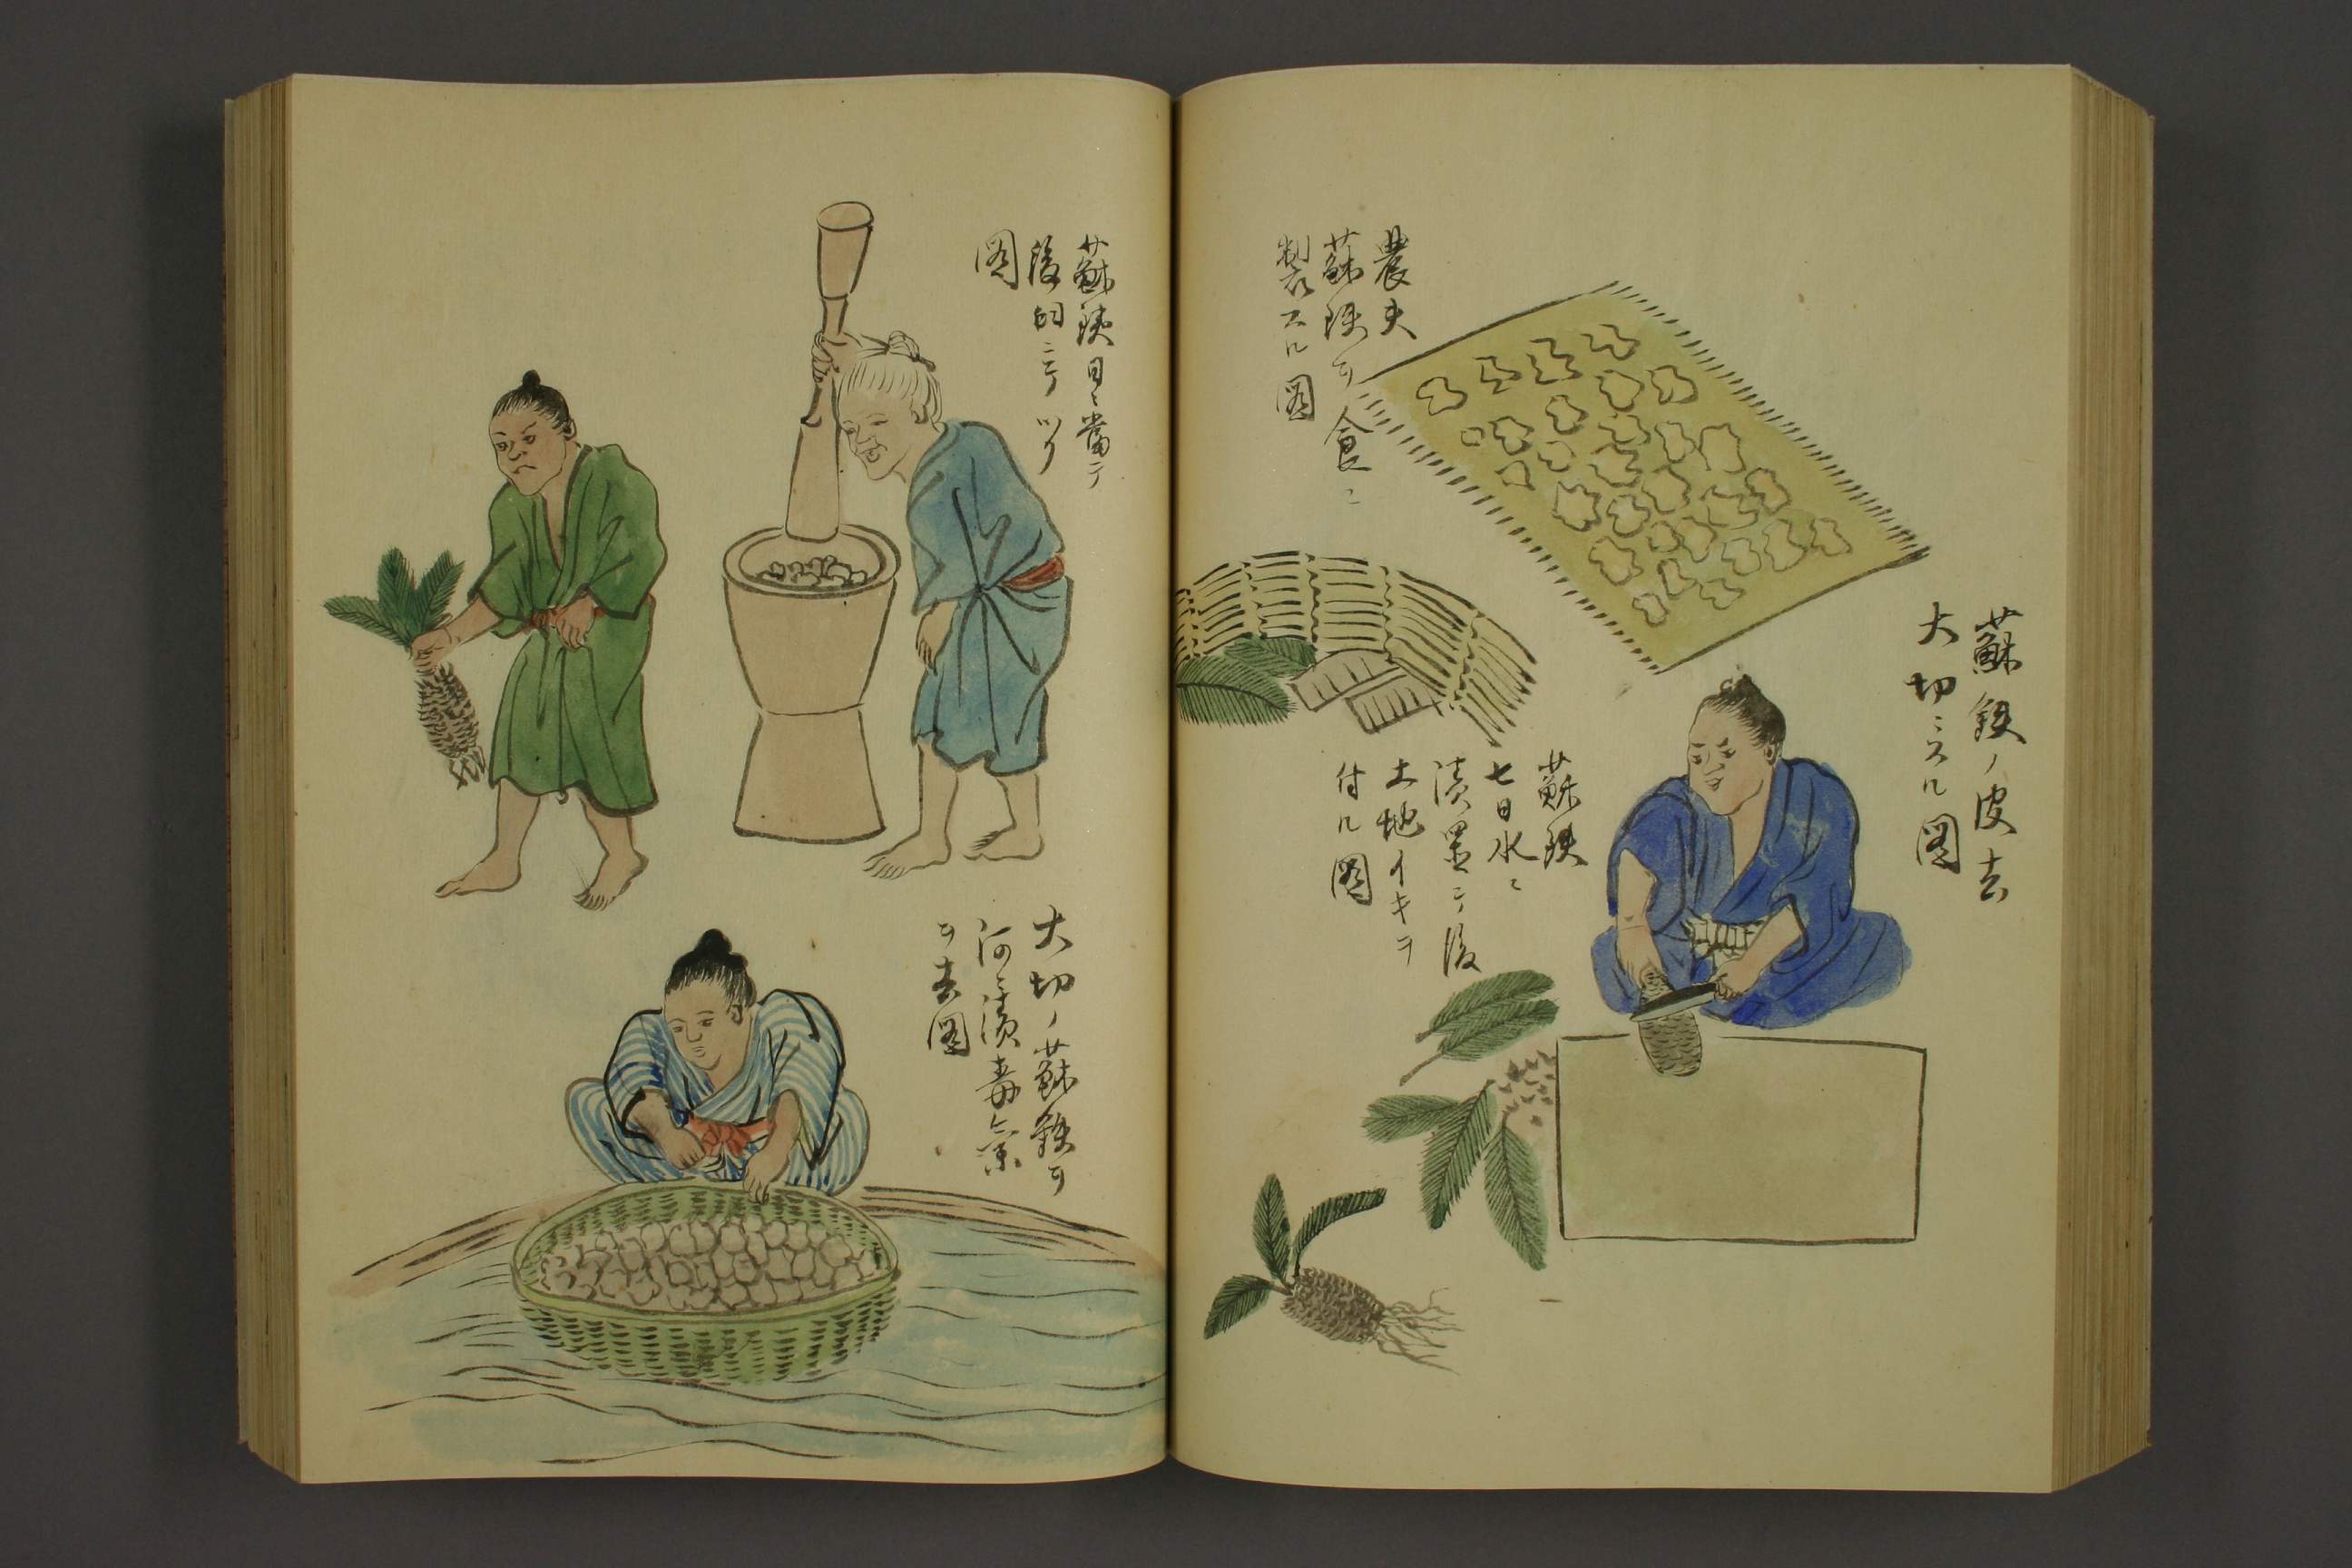 農夫
蘇鉄ヲ食ニ
製スル図
蘇鉄ノ皮去
大切ミスル図
蘇鉄
七日水ニ
漬置テ後
土地イキテ
付ル図
蘇鉄日ニ當テ
後臼ニテツク
図
大切ノ蘇鉄ヲ
河ニ漬毒気
ヲ去図